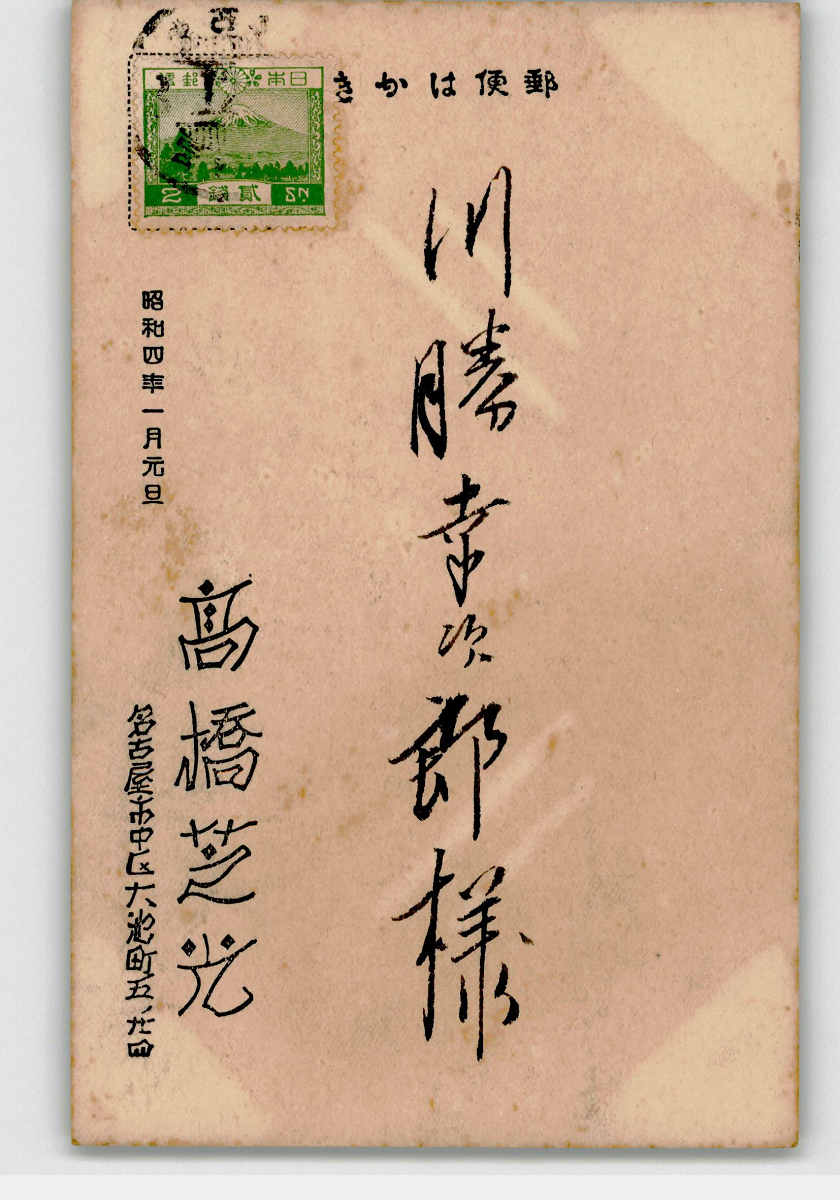 郵便はかき
日本郵便
2 貳錢 SN
川勝幸次郎様
昭和四年一月元旦
高橋芝光
名古屋市中区大池町五ノ廿四